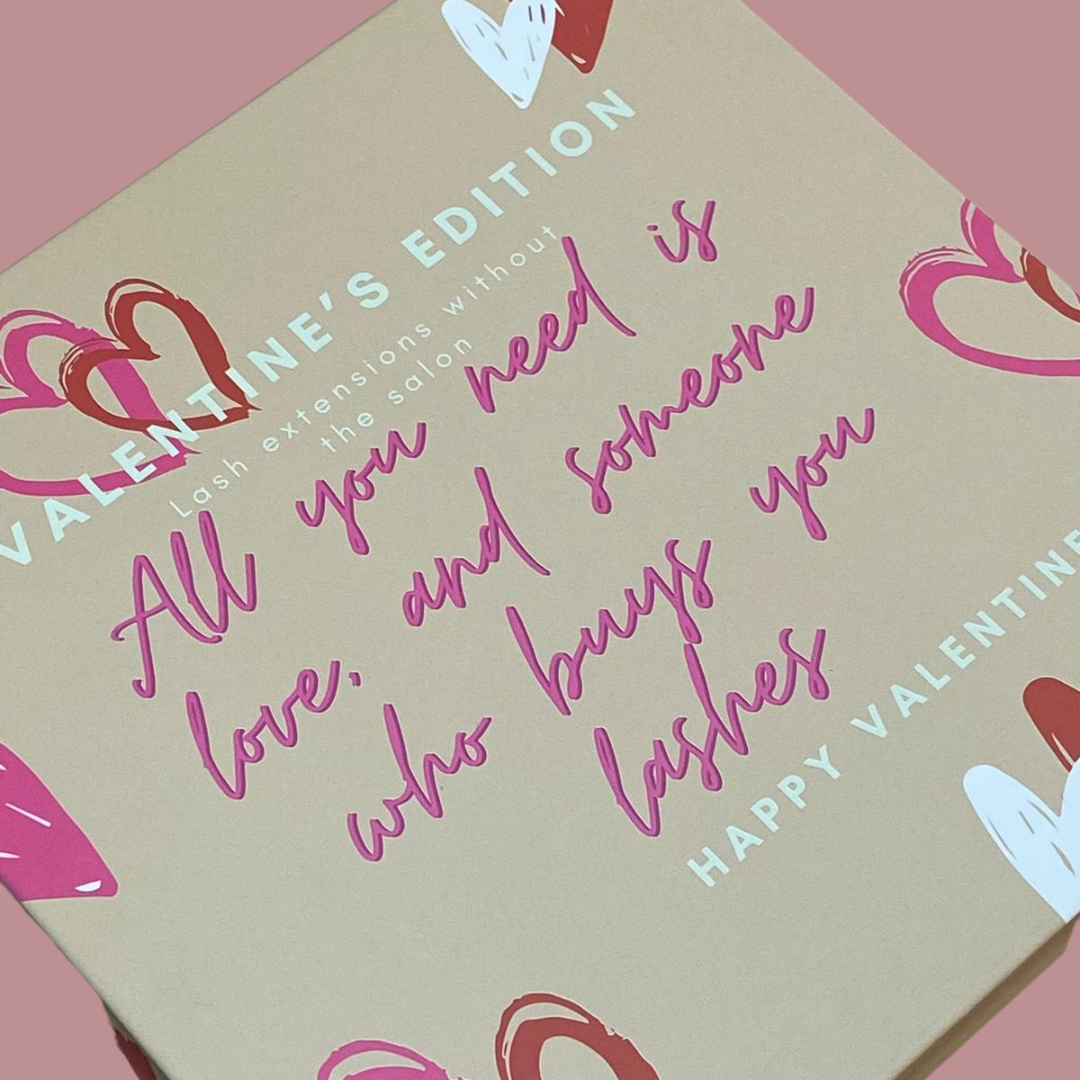 VALENTINE'S EDITION
Lash extensions without
the salon
All you need is
love, and someone
who buys you
lashes
HAPPY VALENTINE